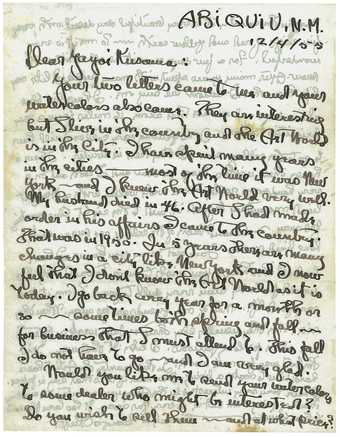 ABIQUIU, N.M.
12/4/55
Dear Yayoi Kusama:
Your two letters came to me and your
watercolors also came. They are interesting
but I live in the country and the Art World
is in the City. I have spent many years
in the cities — most of the time it was New
York — and I knew the Art World very well.
My husband died in 46. After I had made
order in his affairs I came to the country.
That was in 1950. In 5 years there are many
changes in a city like New York and I now
feel that I don't know the Art World as it is
today. I go back every year for a month or
so — sometimes both spring and fall —
for business that I must attend to. This fall
I do not have to go — and I am very glad.
Would you like me to send your watercolors
to some dealer who might be interested?
Do you wish to sell them — and at what price?